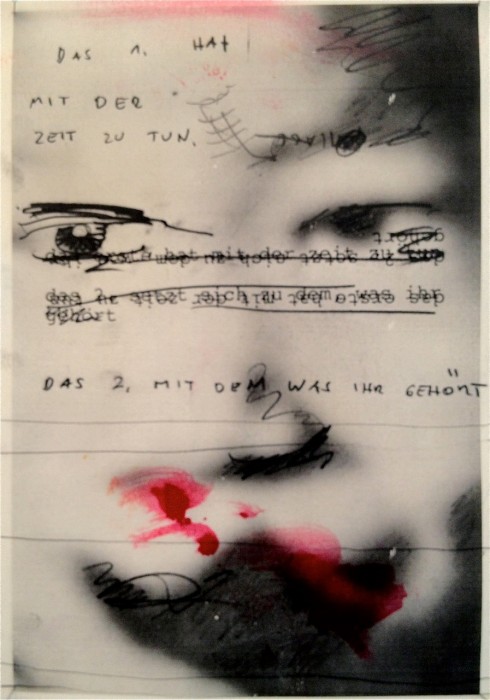 DAS 1. HAT
MIT DER
ZEIT ZU TUN.
gehört
das erste hat mit der zeit zu tun
das 2. setzt sich zu dem, was ihr
gehört
DAS 2. MIT DEM WAS IHR GEHÖRT